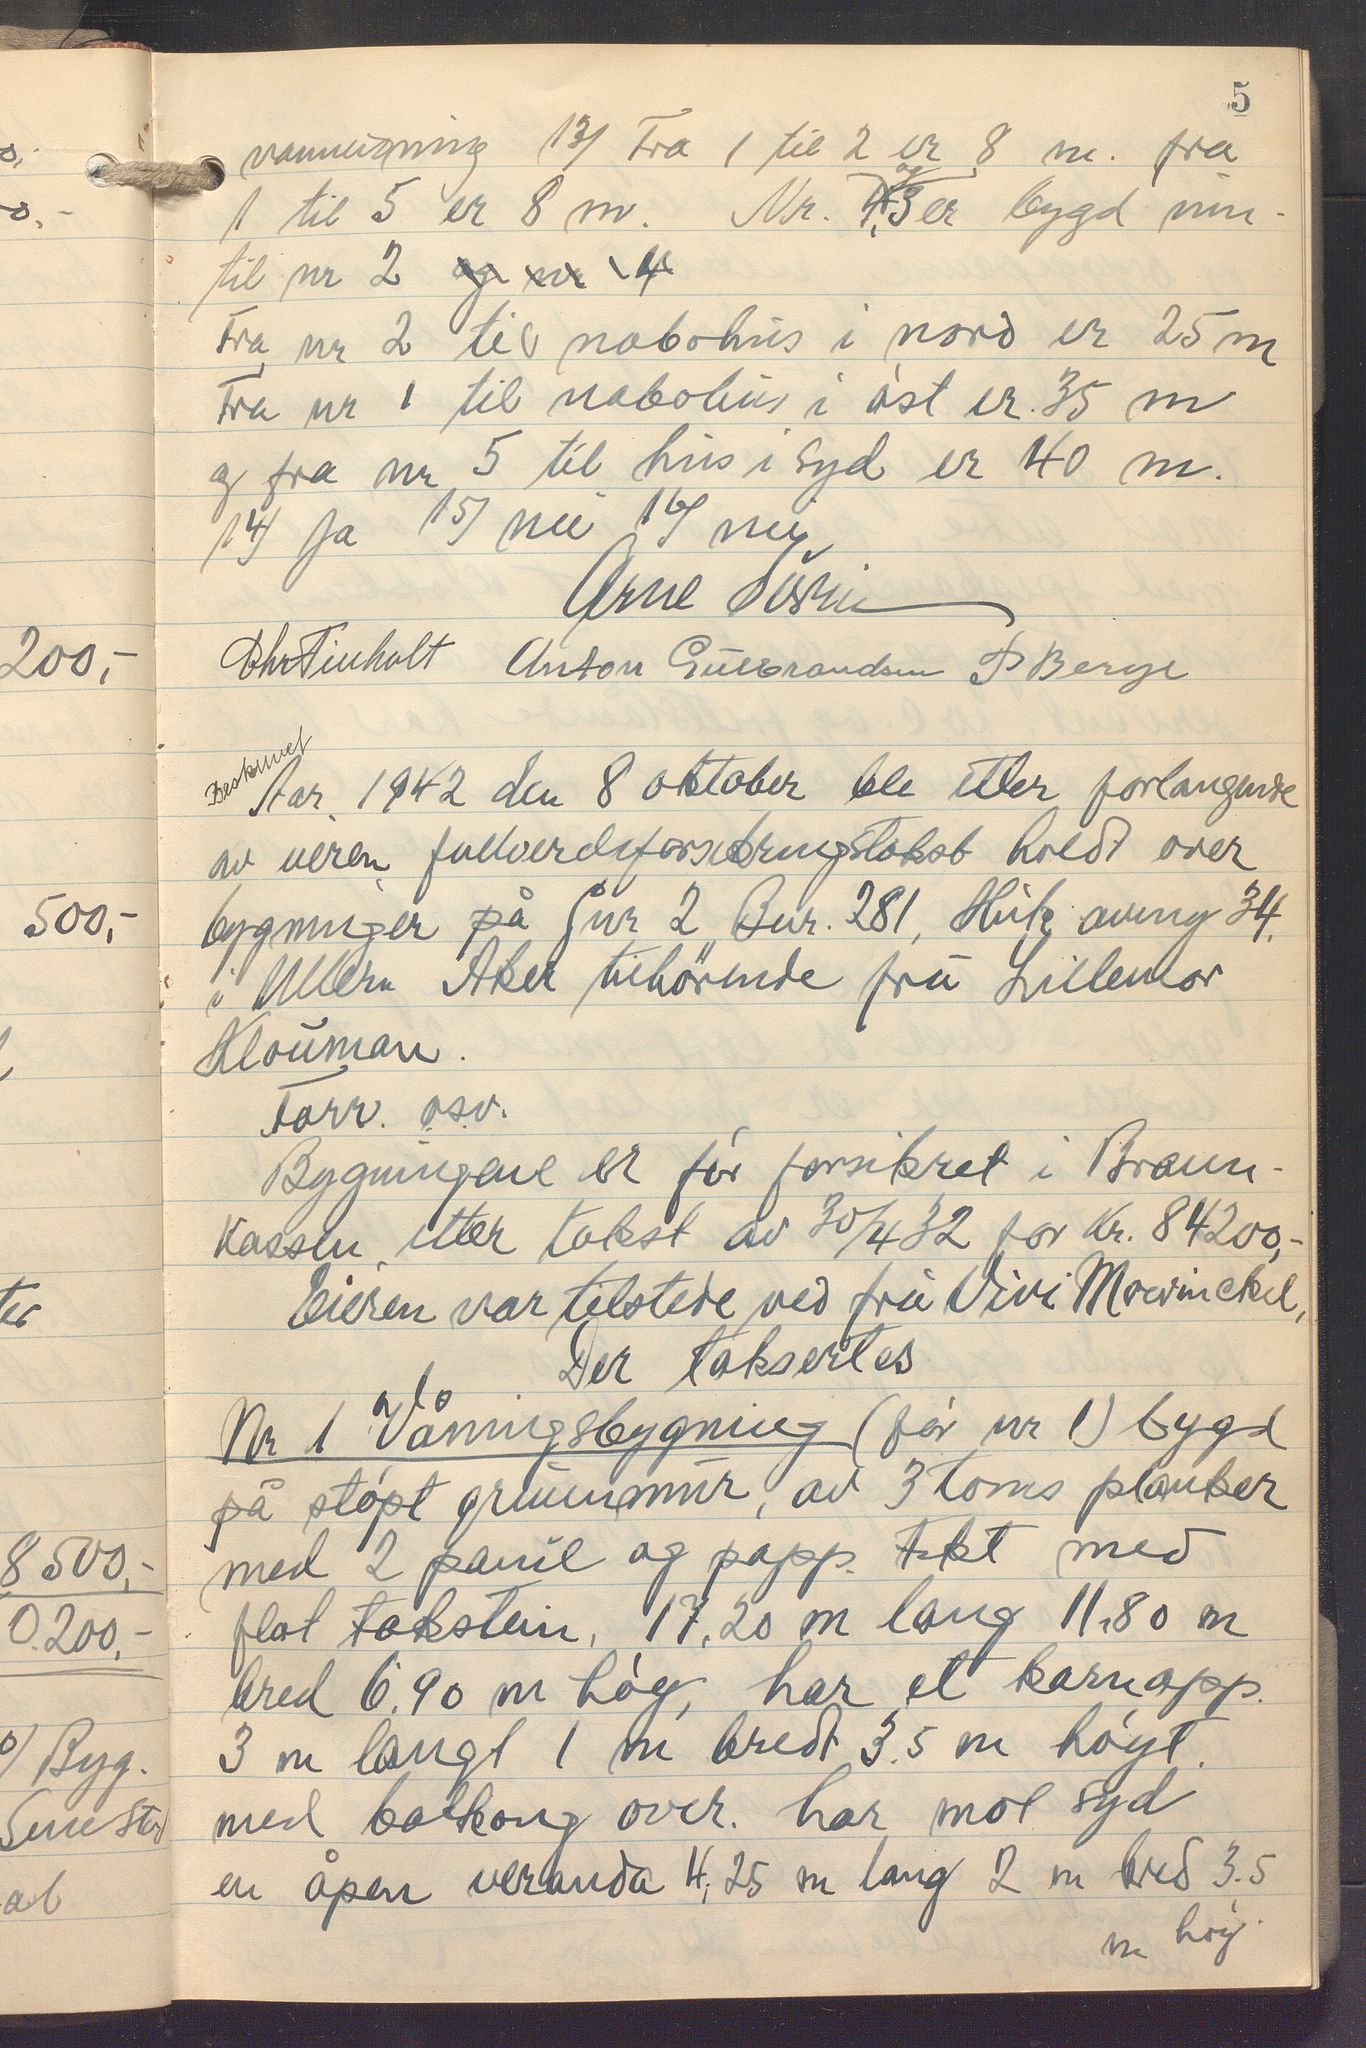 5
vannledning 13/ Fra 1 til 2 er 8 m. fra
1 til 5 er 8 m. Nr. 4 og 3 er bygd inn-
til nr 2 og nr 4
Fra nr 2 til nabohus i nord er 25 m
Fra nr 1 til nabohus i öst er 35 m
og fra nr 5 til hus i syd er 40 m.
14/ Ja 15/ nei 16/ nei
Arne
Chr Finholt Anton Gulbrandsen P Berge
Beskrivet
Aar 1942 den 8 oktober ble etter forlangende
av eieren fullverdiforsikringstakst holdt over
bygninger på Gnr 2 Bnr. 281, Huk aveny 34,
i Ullern Aker tilhörende fru Lillemor
Klouman.
Forr. osv.
Bygningene er för forsikret i Brann-
kassen etter takst av 30/4 32 for Kr. 84200,-
Eieren var tilstede ved fru Vivi Mowinckel,
Der taksertes
Nr 1 Våningsbygning (för nr 1) bygd
på stöpt grunnmur, av 3 toms planker
med 2 panel og papp. Tekt med
flat takstein, 17,20 m lang 11,80 m
bred 6,90 m hög, har et karnapp.
3 m langt 1 m bredt 3.5 m högt.
med balkong over. har mot syd
en åpen veranda 4,25 m lang 2 m bred 3.5
m hög.
200,-
500,-
8 500,-
0.200,-
Byg.